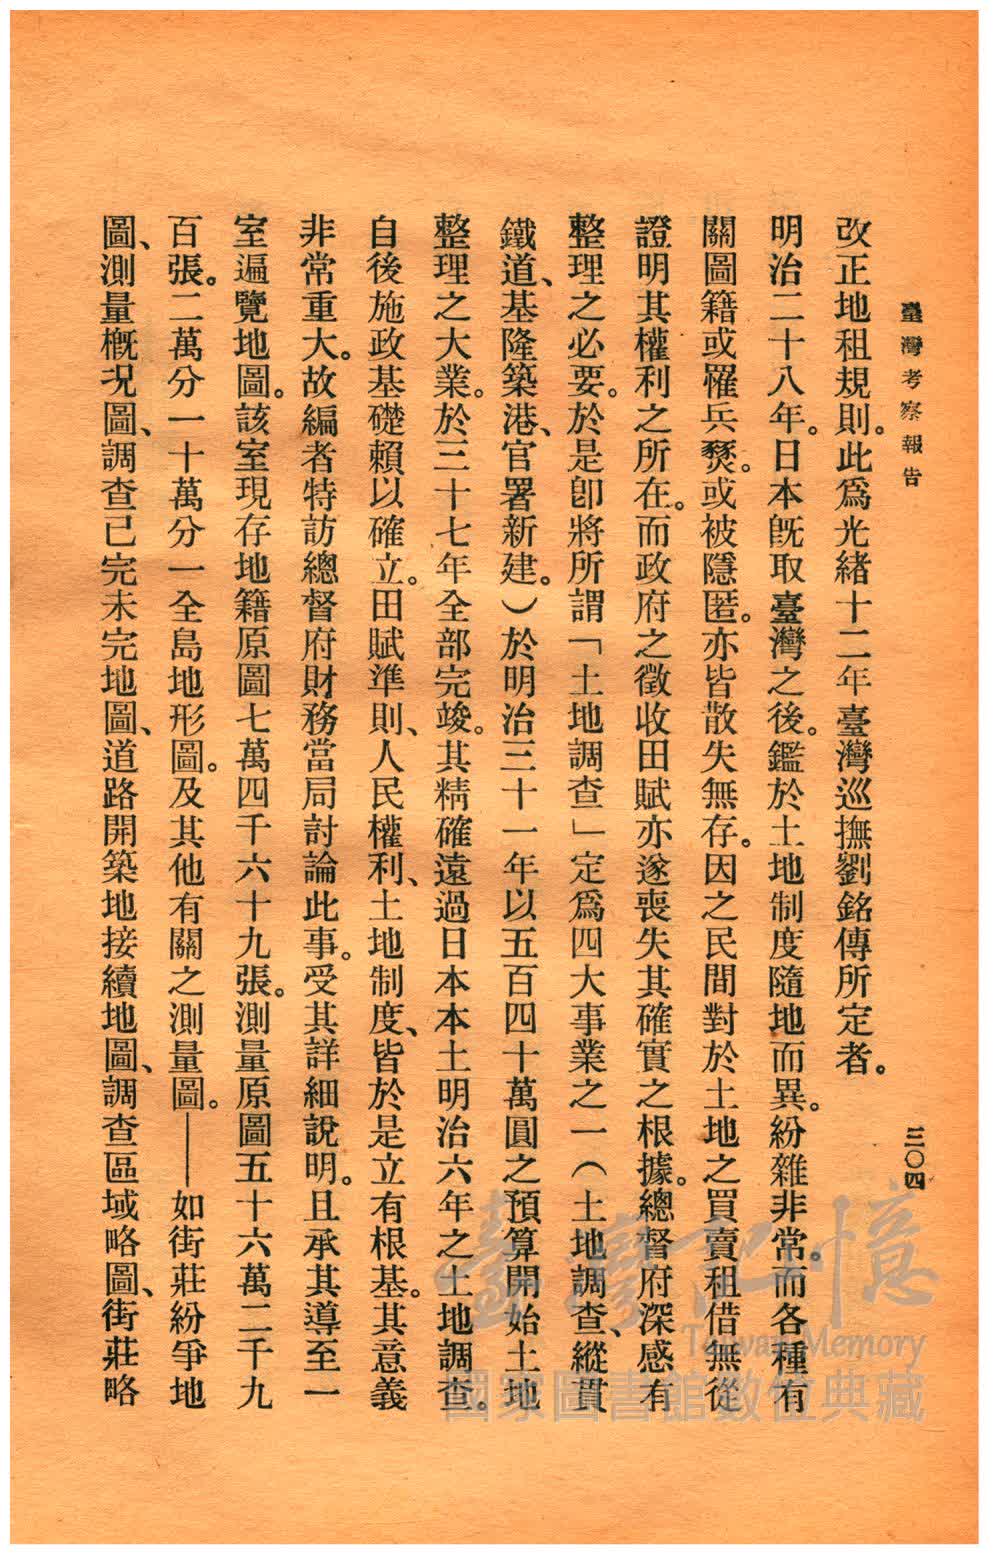 臺灣考察報告
三〇四
改正地租規則。此爲光緒十二年臺灣巡撫劉銘傳所定者。
明治二十八年。日本旣取臺灣之後。鑑於土地制度隨地而異。紛雜非常。而各種有
關圖籍或罹兵燹。或被隱匿。亦皆散失無存。因之民間對於土地之買賣租借無從
證明其權利之所在。而政府之徵收田賦亦遂喪失其確實之根據。總督府深感有
整理之必要。於是卽將所謂「土地調查」定爲四大事業之一（土地調查、縱貫
鐵道、基隆築港、官署新建。）於明治三十一年以五百四十萬圓之預算開始土地
整理之大業。於三十七年全部完竣。其精確遠過日本本土明治六年之土地調查。
自後施政基礎賴以確立。田賦準則、人民權利、土地制度、皆於是立有根基。其意義
非常重大。故編者特訪總督府財務當局討論此事。受其詳細說明。且承其導至一
室遍覽地圖。該室現存地籍原圖七萬四千六十九張。測量原圖五十六萬二千九
百張。二萬分一十萬分一全島地形圖。及其他有關之測量圖。——如街莊紛爭地
圖、測量概況圖、調查已完未完地圖、道路開築地接續地圖、調查區域略圖、街莊略
臺灣記憶
Taiwan Memory
國家圖書館數位典藏